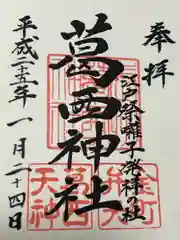 奉拝
江戸祭囃子発祥の社
葛西神社
平成二五年一月二十四日
金町
葛西
天神